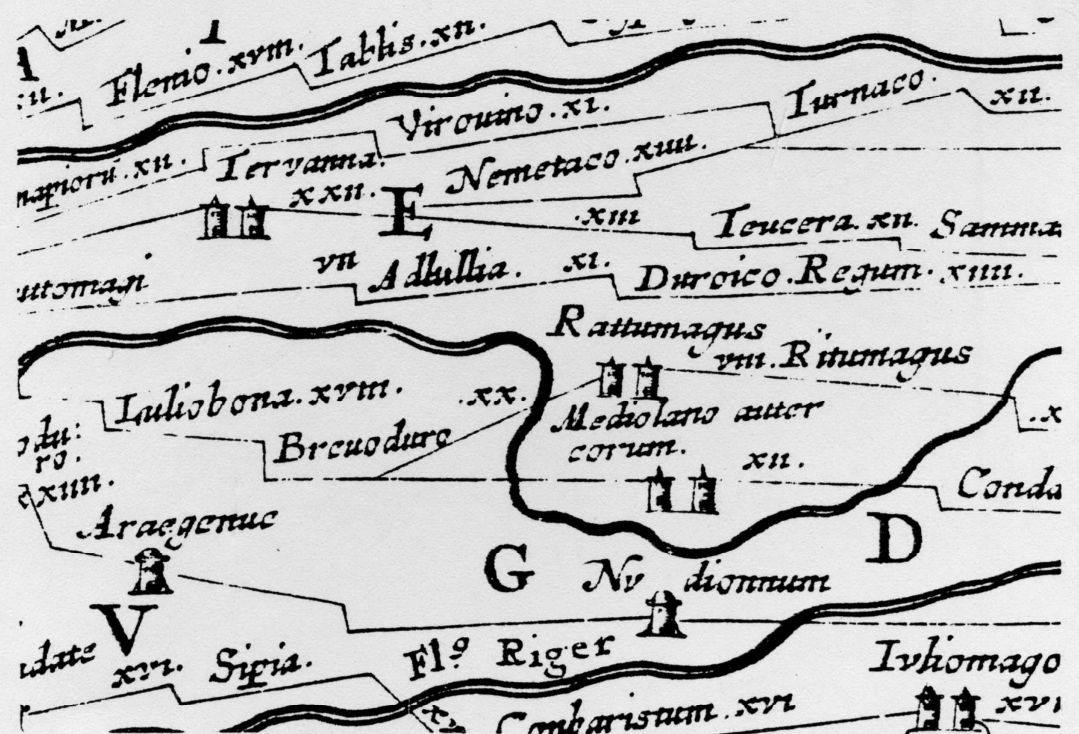 Flenio. xviii.
Tablis. xii.
xii.
Virouino. xi.
Turnaco.
xii.
napiorū. xii.
Teruanna.
xxii.
E
Nemetaco. xiiii.
xiii
Teucera. xii.
Samma
utomagi
vii
Adlullia.
xi.
Duroico. Regum. xiiii.
Rattumagus
viii. Ritumagus
Iuliobona. xviii.
xx.
Mediolano auler
corum.
Breuoduro
odu:
ro.
xiiii.
.x
xii.
Conda
Araegenue
G
D
Nv dionnum
V
idate
xvi.
Sipia.
Flº Riger
Ivliomago
Conbaristum. xvi
xvi